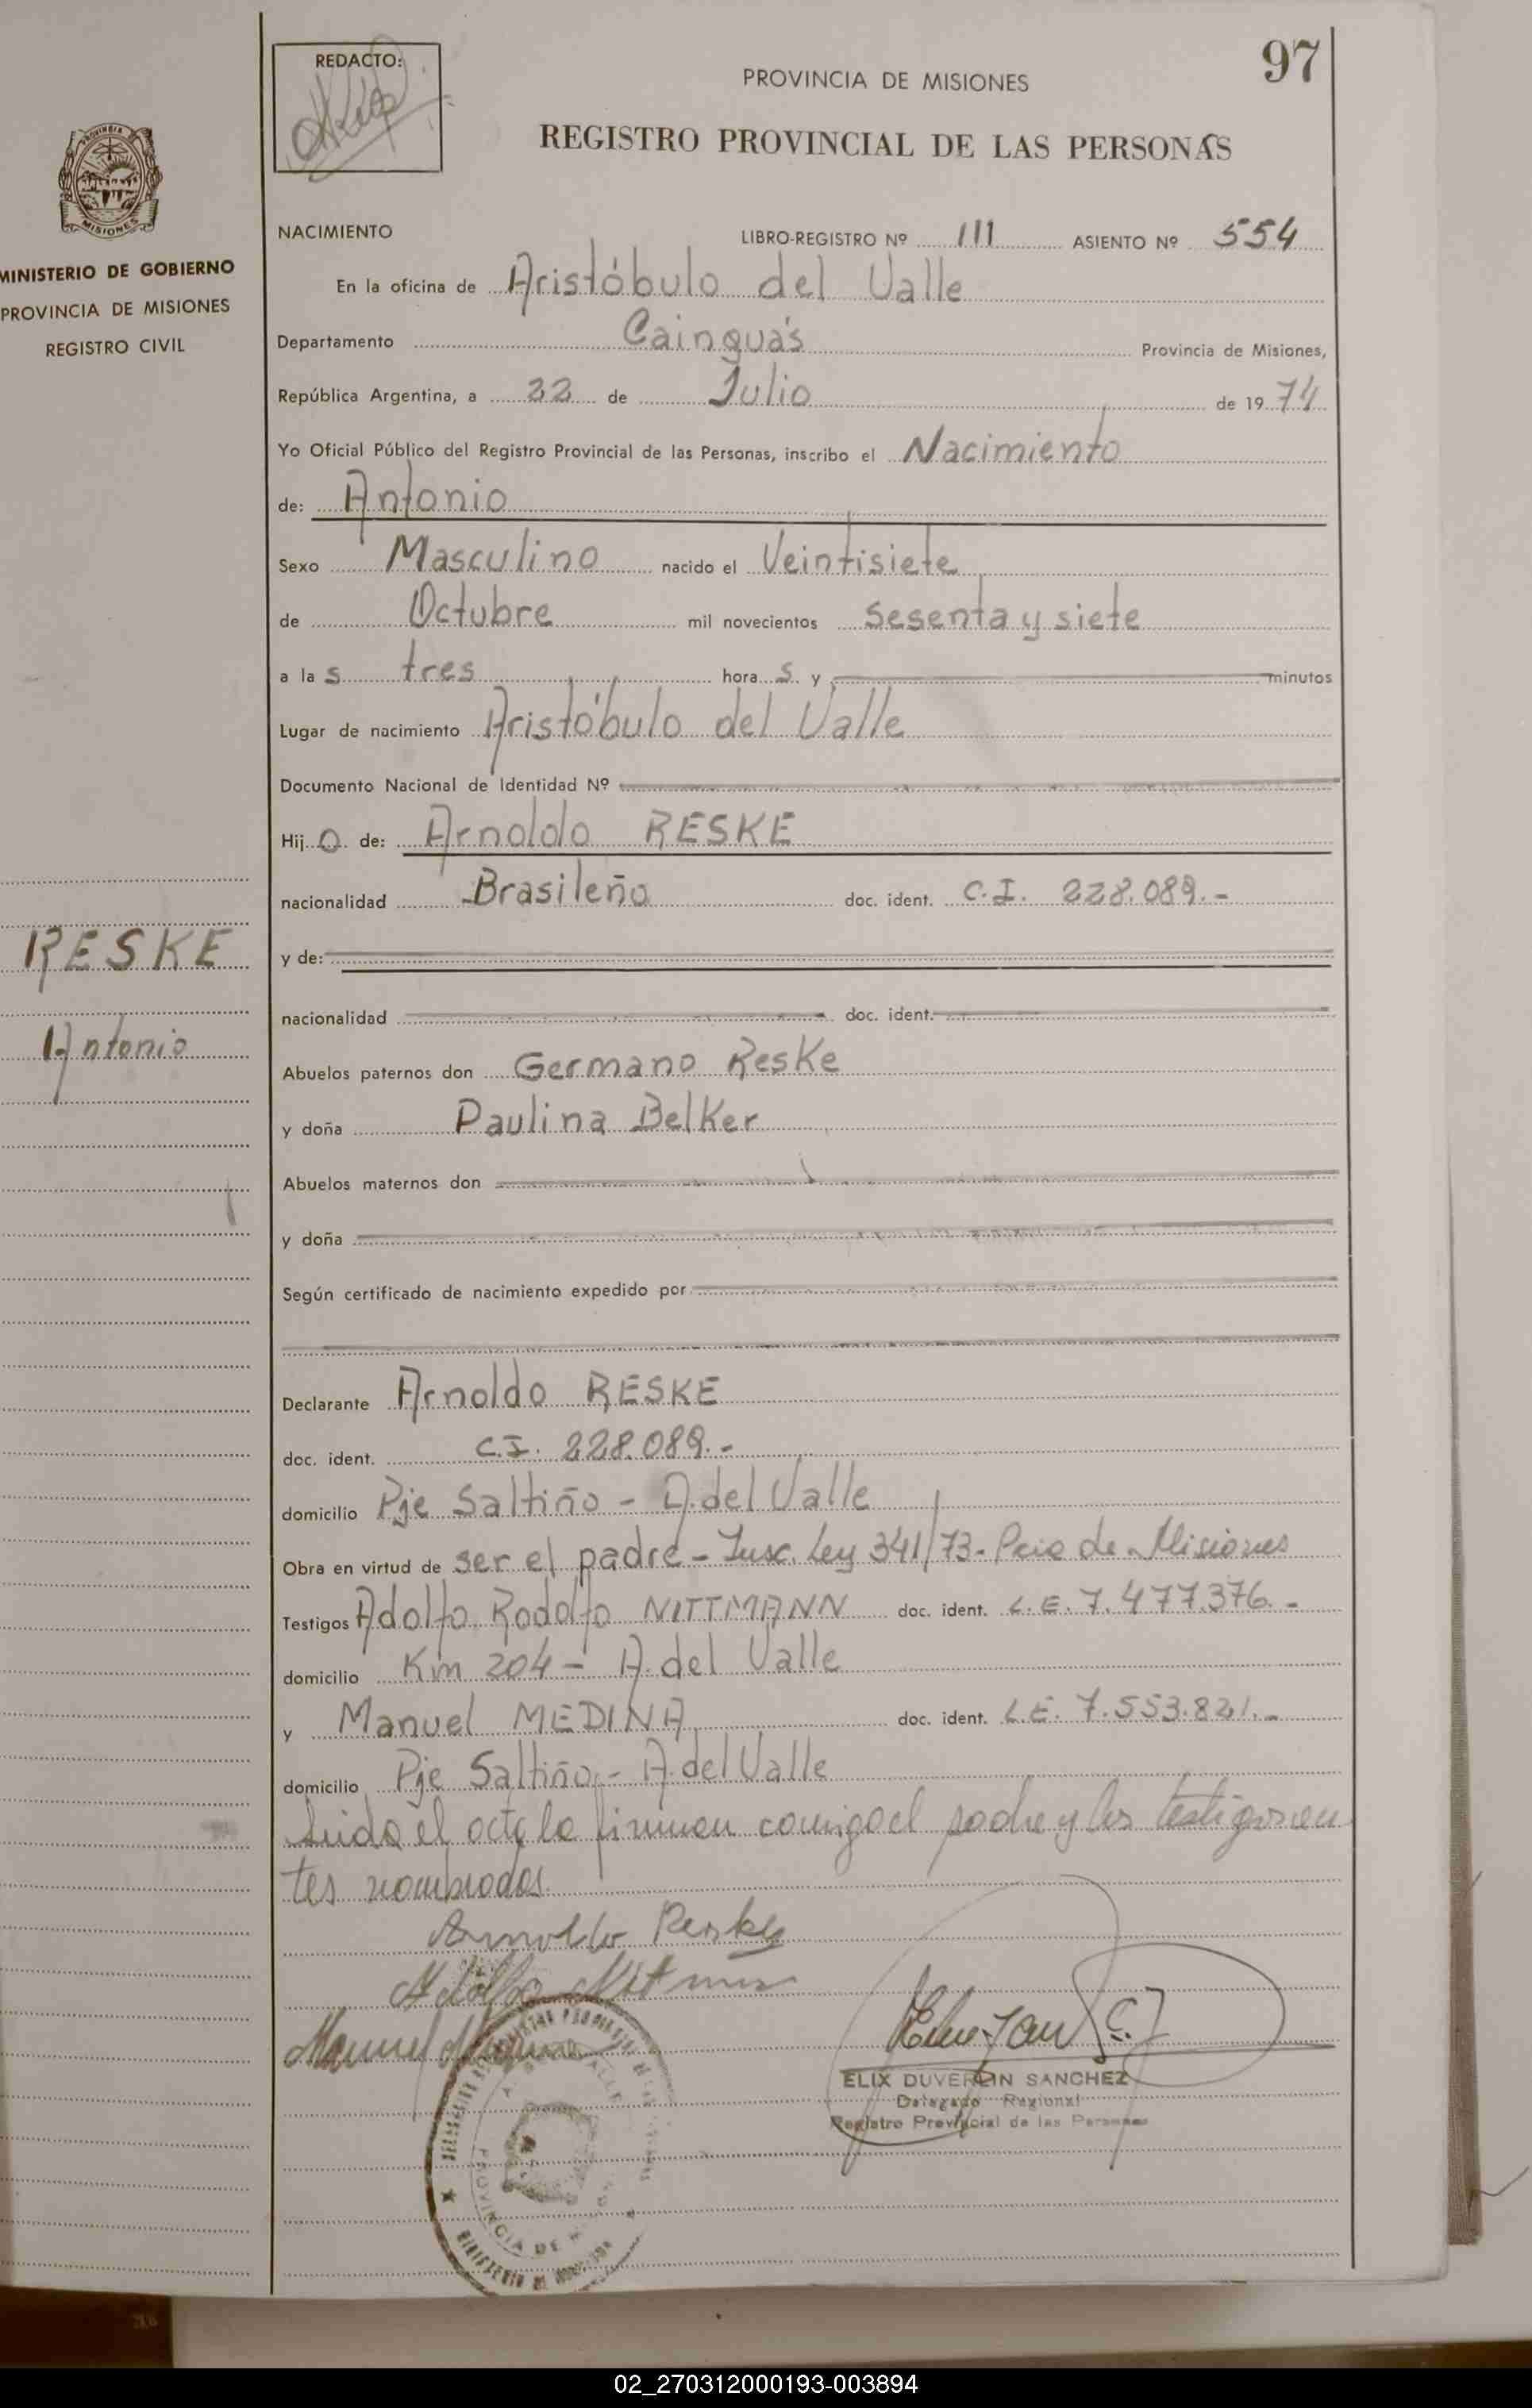 97
REDACTO:
PROVINCIA DE MISIONES
REGISTRO PROVINCIAL DE LAS PERSONAS
MISIONES
MINISTERIO DE GOBIERNO
PROVINCIA DE MISIONES
REGISTRO CIVIL
RESKE
Antonio
NACIMIENTO LIBRO-REGISTRO Nº 111 ASIENTO Nº 554
En la oficina de Aristóbulo del Valle
Departamento Cainguás Provincia de Misiones,
República Argentina, a 22 de Julio de 1974
Yo Oficial Público del Registro Provincial de las Personas, inscribo el Nacimiento
de: Antonio
Sexo Masculino nacido el Veintisiete
de Octubre mil novecientos Sesenta y siete
a las tres horas y minutos
Lugar de nacimiento Aristóbulo del Valle
Documento Nacional de Identidad Nº
Hijo de: Arnoldo RESKE
nacionalidad Brasileña doc. ident. C.I. 228.089.-
y de:
nacionalidad doc. ident.
Abuelos paternos don Germano Reske
y doña Paulina Belker
Abuelos maternos don
y doña
Según certificado de nacimiento expedido por
Declarante Arnoldo RESKE
doc. ident. C.I. 228.089.-
domicilio Pje Saltiño - A. del Valle
Obra en virtud de ser el padre - Insc. Ley 341/73 - Pcia de Misiones
Testigos Adolfo Rodolfo NITTMANN doc. ident. L.E. 7.477.376.-
domicilio Km 204 - A. del Valle
y Manuel MEDINA doc. ident. L.E. 7.553.821.-
domicilio Pje Saltiño - A. del Valle
Leida el acta la firman conmigo el padre y los testigos
nombrados.
Arnoldo Reske
ELIX DUVERLIN SANCHEZ
Delegado Regional
Registro Provincial de las Personas
PROVINCIA DE
02_270312000193-003894